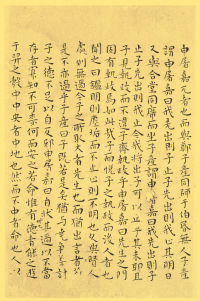 申屠嘉兀者也而與鄭子產同師于伯昏無人子產
謂申屠嘉曰我先出則子止子先出則我止其明日
又與合堂同席而坐子產謂申屠嘉曰我先出則子
止子先出則我止今我將出子可以止乎其未邪且
子見執政而不違子齊執政乎申屠嘉曰先生之門
固有執政焉如此哉子而悅子之執政而後人者也
聞之曰鑑明則塵垢不止止則不明也久與賢人
處則無過今子之所取大者先生也而猶出言若
是不亦過乎子產曰子既若是矣猶與堯爭善計
子之德不足以自反邪申屠嘉曰自狀其過以不當
存者寡知不可奈何而安之若命惟有德者能之遊
于羿之彀中中央者中地也然而不中者命也人以